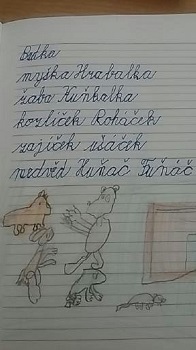 Budka
myška Hrabalka
žaba Kuňkalka
kozlíček Roháček
zajíček ušáček
medvěd Huňač Tuňáč